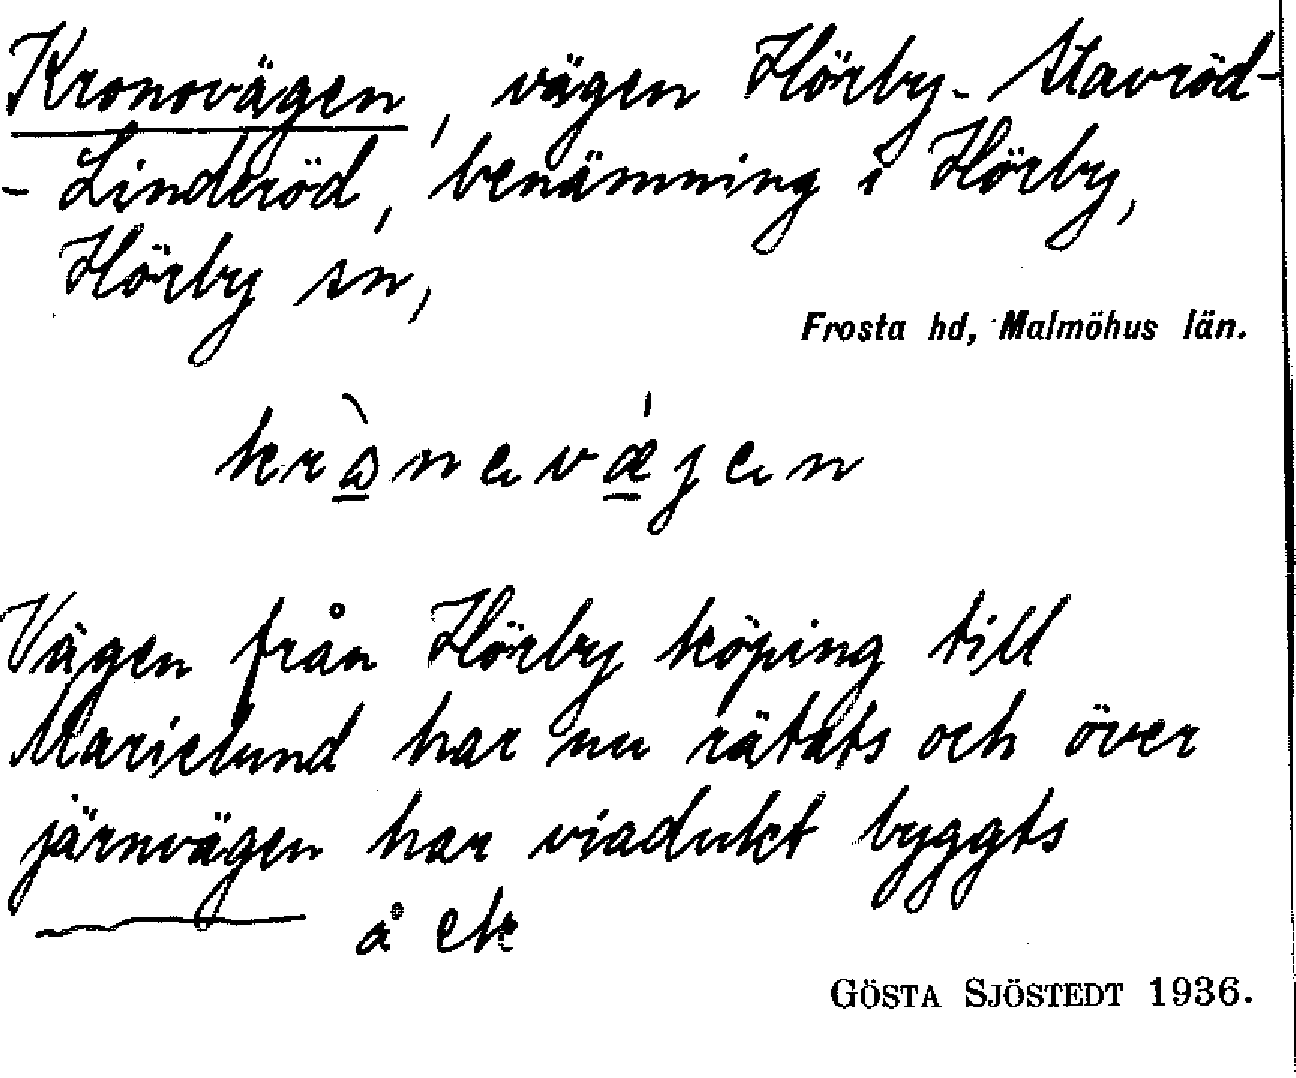 Kronovägen, vägen Hörby-Stavröd-
- Linderöd, benämning i Hörby,
Hörby sn,
Frosta hd, Malmöhus län.
Vägen från Hörby köping till
Marielund har nu rätats och över
järnvägen har viadukt byggts
å ek
GÖSTA SJÖSTEDT 1936.